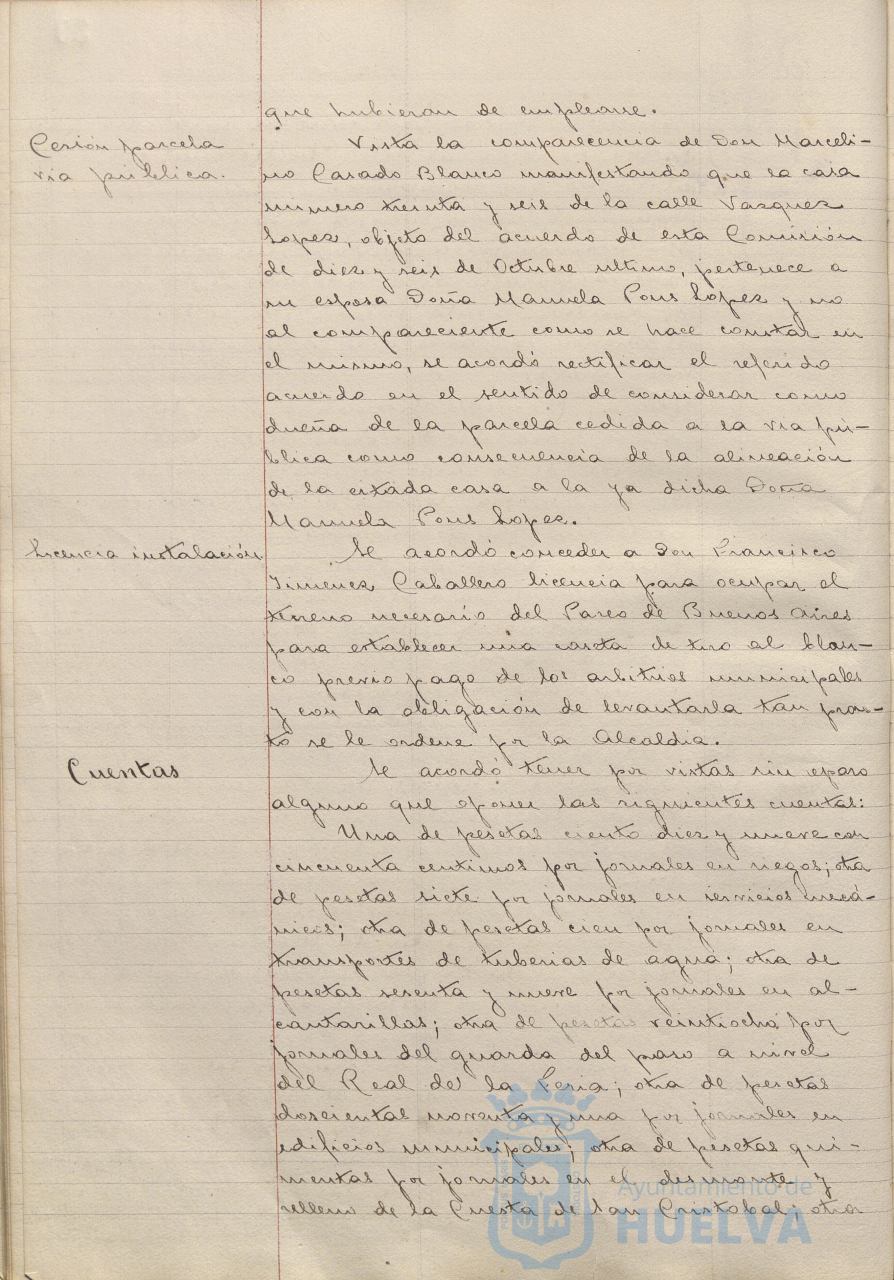 que hubieran de emplearse.
Cesión parcela
via pública.
Vista la comparecencia de Don Marceli-
no Casado Blanco manifestando que la casa
numero treinta y seis de la calle Vazquez
Lopez, objeto del acuerdo de esta Comisión
de diez y seis de Octubre ultimo, pertenece a
su esposa Doña Manuela Pons Lopez y no
al compareciente como se hace constar en
el mismo, se acordó rectificar el referido
acuerdo en el sentido de considerar como
dueña de la parcela cedida a la via pú-
blica como consecuencia de la alineación
de la citada casa a la ya dicha Doña
Manuela Pons Lopez.
Licencia instalación
Se acordó conceder a Don Francisco
Jimenez Caballero licencia para ocupar el
terreno necesario del Paseo de Buenos Aires
para establecer una caseta de tiro al blan-
co previo pago de los arbitrios municipales
y con la obligación de levantarla tan pron-
to se le ordene por la Alcaldia.
Cuentas
Se acordó tener por vistas sin reparo
alguno que oponer las siguientes cuentas:
Una de pesetas ciento diez y nueve con
cincuenta centimos por jornales en riegos; otra
de pesetas siete por jornales en servicios mecá-
nicos; otra de pesetas cien por jornales en
transportes de tuberias de agua; otra de
pesetas sesenta y nueve por jornales en al-
cantarillas; otra de pesetas veintiocho por
jornales del guarda del paso a nivel
del Real de la Feria; otra de pesetas
doscientas noventa y una por jornales en
edificios municipales; otra de pesetas qui-
nientas por jornales en el desmonte y
relleno de la Cuesta de San Cristobal; otra
Ayuntamiento de
HUELVA